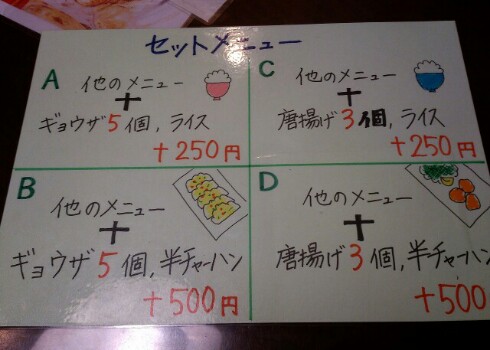 セットメニュー
A
他のメニュー
+
ギョウザ5個,ライス
+250円
C
他のメニュー
+
唐揚げ3個,ライス
+250円
B
他のメニュー
+
ギョウザ5個,半チャーハン
+500円
D
他のメニュー
+
唐揚げ3個,半チャーハン
+500